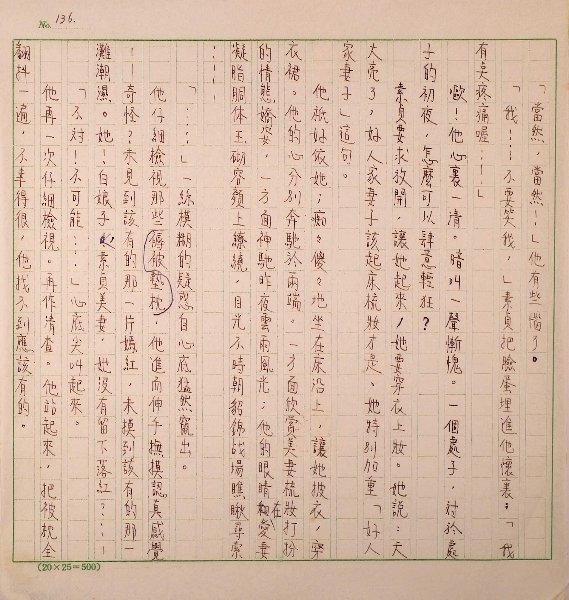 No. 136.
「當然，當然！」他有些惱了。
「我！！不要笑我，」素貞把臉蛋埋進他懷裏：「我
有吳疼痛喔！！」
歐！他心裏一清。暗叫一聲慚愧。一個處子，對於處
子的初夜，怎麼可以肆意輕狂？
素貞要求放開，讓她起來，她要穿衣上妝。她說：天
大亮了，好人家妻子該起床梳妝才是。她特別加重「好人
家妻子」這句。
他祇好依她；痴々傻々地坐在床沿上，讓她披衣，穿
衣裙。他的心分別奔馳於兩端。一方面欣賞美妻梳妝打扮
的情態嬌姿，一方面神馳昨夜雲雨風光；他的眼睛在愛妻
凝脂胴體玉砌容顏上繚繞，目光不時朝貂錦战場瞧瞅尋索
……
「……」一絲模糊的疑惑自心底猛然竄出。
他仔細檢視那些褥被墊枕，他進而伸手撫摸認真感覺
！！奇怪？未見到該有的那一片嫣紅，未摸到該有的那一
灘潮濕。她！白娘子，素貞美妻，她沒有留下落紅？……
「不對！不可能……」心底尖叫起來。
他再一次仔細檢視。再作清查。他站起來，把被枕全
翻抖一遍，不幸得很，他找不到應該有的。
(20×25=500)